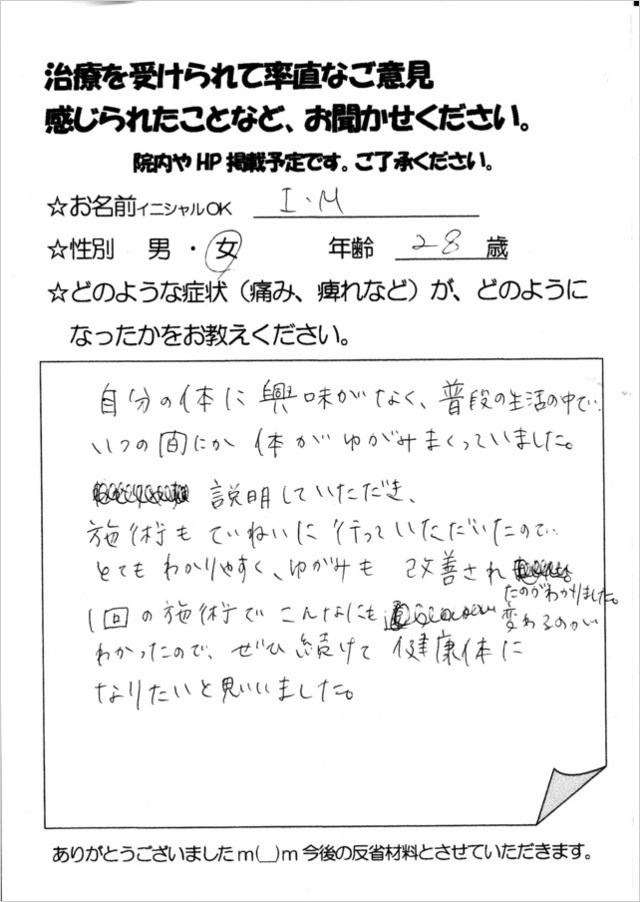 治療を受けられて率直なご意見
感じられたことなど、お聞かせください。
院内やHP掲載予定です。ご了承ください。
☆お名前イニシャルOK I・M
☆性別 男・女 年齢 28 歳
☆どのような症状（痛み、痺れなど）が、どのように
なったかをお教えください。
自分の体に興味がなく、普段の生活の中で
いつの間にか体がゆがみまくっていました。
説明していただき、
施術もていねいに行っていただいたので
とてもわかりやすく、ゆがみも改善され
たのがわかりました。
1回の施術でこんなにも変わるのが
わかったので、ぜひ続けて健康体に
なりたいと思いました。
ありがとうございましたm(__)m今後の反省材料とさせていただきます。